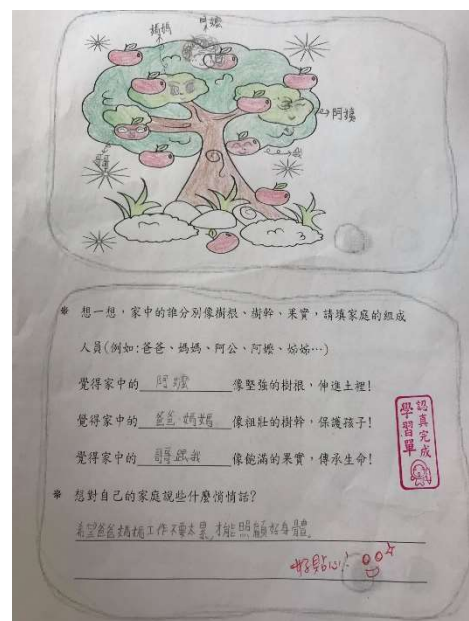 媽媽
阿嬤
阿嬤
哥哥
我
✵ 想一想,家中的誰分別像樹根、樹幹、果實,請填家庭的組成
人員(例如:爸爸、媽媽、阿公、阿嬤、姊姊…)
覺得家中的 阿嬤 像堅強的樹根,伸進土裡!
覺得家中的 爸爸、媽媽 像粗壯的樹幹,保護孩子!
覺得家中的 哥哥跟我 像飽滿的果實,傳承生命!
認真完成
學習單
✵ 想對自己的家庭說些什麼悄悄話?
希望爸爸媽媽工作不要太累,才能照顧好身體。
好貼心!